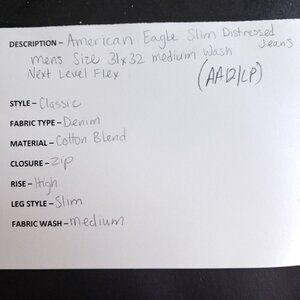 DESCRIPTION – American Eagle Slim Distressed Jeans
mens Size 31x32 medium Wash
Next Level Flex
(AA12/LP)
STYLE – Classic
FABRIC TYPE – Denim
MATERIAL – Cotton Blend
CLOSURE – Zip
RISE – High
LEG STYLE – Slim
FABRIC WASH – medium